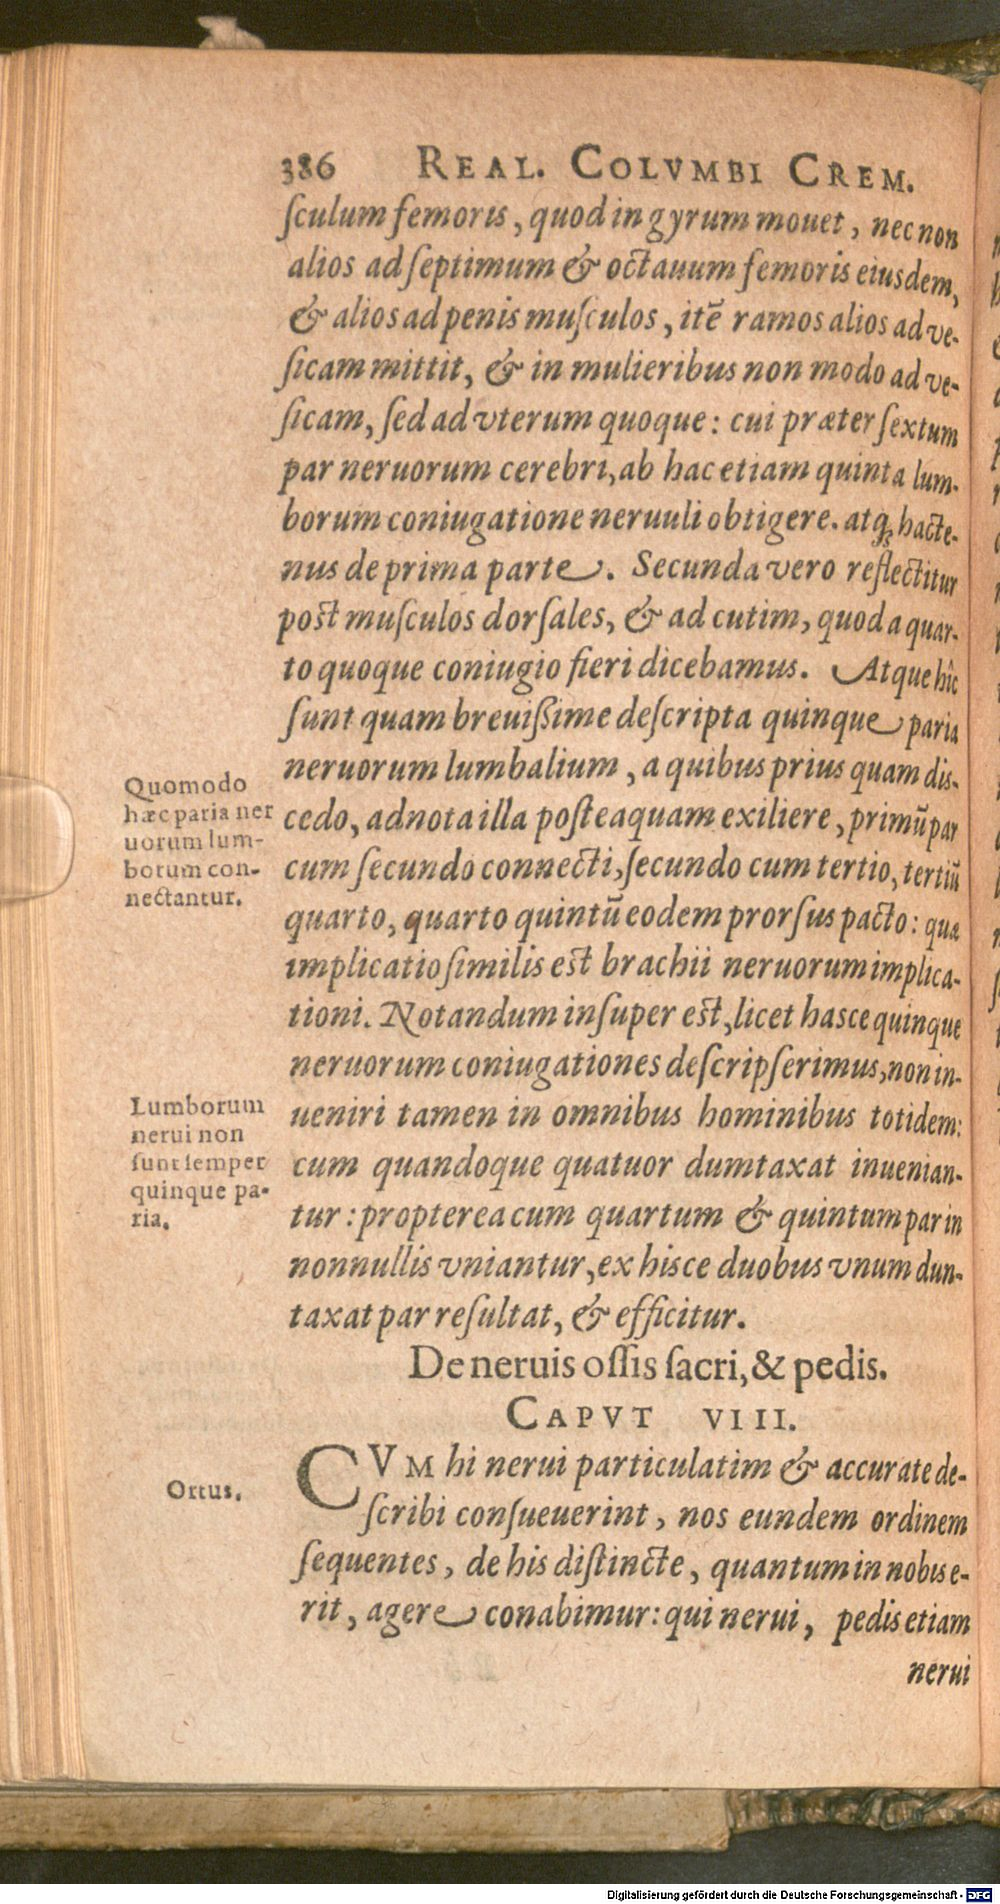 386 REAL. COLVMBI CREM.
ſculum femoris, quod in gyrum mouet, nec non
alios ad ſeptimum & octauum femoris eiusdem,
& alios ad penis muſculos, itẽ ramos alios ad ve-
ſicam mittit, & in mulieribus non modo ad ve-
ſicam, ſed ad vterum quoque: cui præter ſextum
par neruorum cerebri, ab hac etiam quinta lum-
borum coniugatione neruuli obtigere. atq; hacte-
nus de prima parte. Secunda vero reflectitur
post muſculos dorſales, & ad cutim, quod a quar-
to quoque coniugio fieri dicebamus. Atque hîc
ſunt quam breuiſſime deſcripta quinque paria
neruorum lumbalium, a quibus prius quam dis-
cedo, adnota illa poſteaquam exiliere, primũ par
cum ſecundo connecti, ſecundo cum tertio, tertiũ
quarto, quarto quintũ eodem prorſus pacto: quæ
implicatio ſimilis est brachii neruorum implica-
tioni. Notandum inſuper est, licet hasce quinque
neruorum coniugationes deſcripſerimus, non in-
ueniri tamen in omnibus hominibus totidem:
cum quandoque quatuor dumtaxat inuenian-
tur: propterea cum quartum & quintum par in
nonnullis vniantur, ex hisce duobus vnum dun-
taxat par reſultat, & efficitur.
Quomodo
hæc paria ner
uorum lum-
borum con-
nectantur.
Lumborum
nerui non
ſunt ſemper
quinque pa-
ria.
De neruis oſſis ſacri, & pedis.
CAPVT VIII.
Ortus.
CVM hi nerui particulatim & accurate de-
ſcribi conſueuerint, nos eundem ordinem
ſequentes, de his diſtincte, quantum in nobis e-
rit, agere conabimur: qui nerui, pedis etiam
nerui
Digitalisierung gefördert durch die Deutsche Forschungsgemeinschaft - DFG